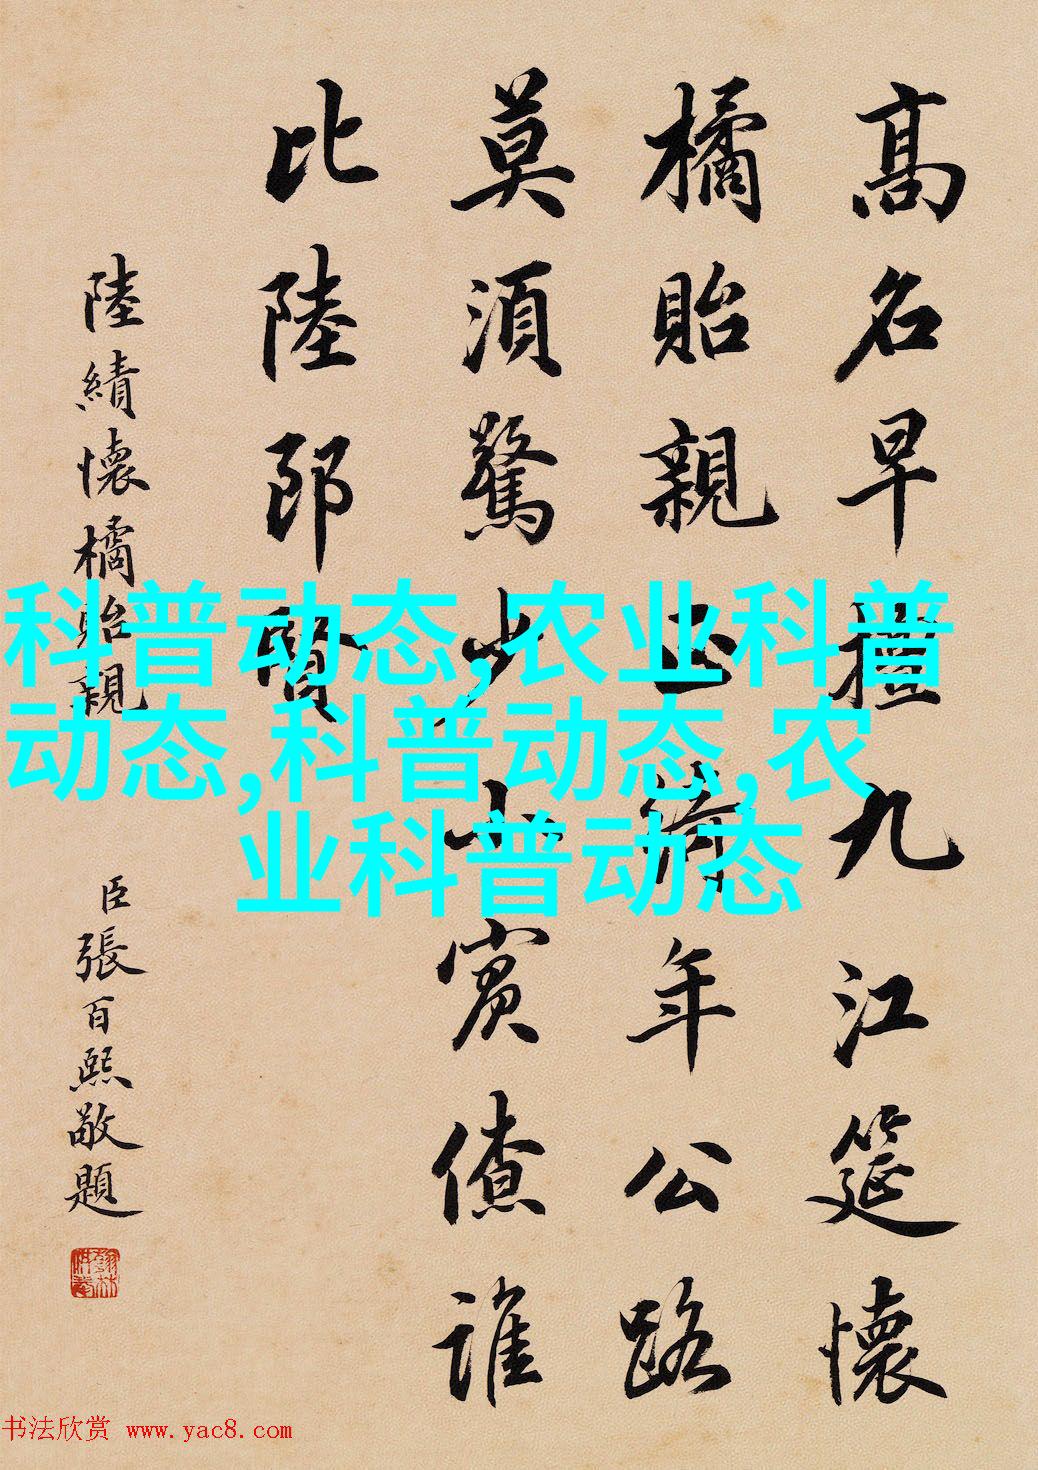 高名早擅九江筵懷
橘貽親正
年公路
莫須驚少
賓僚誰
比陸郎賢
陸績懷橘貽親
臣張百熙敬題
科普动态,农业科普
动态,科普动态,农
业科普动态
书法欣赏 www.yac8.com